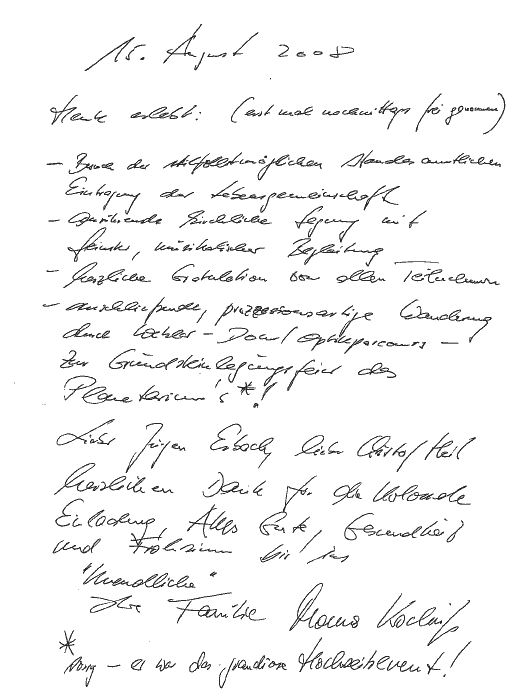 15. August 2008
Heute erlebt: (erst mal nachmittags frei genommen)
- Besuch der standesamtlichen
Eintragung der Lebensgemeinschaft
- kirchliche Segnung mit
feinster, musikalischer Begleitung
- herzliche Gratulation von allen Teilnehmern
- anschließende, prozessionsartige Wanderung
durch -
zur Grundsteinlegungsfeier des
Planetarium's *!
Lieber Jürgen lieber Christof Heil
herzlichen Dank für die
Einladung, Alles Gute, Gesundheit
und Frohsinn bis ins
"Unendliche"
Ihre Familie
* Sorry - es war das grandiose Hochzeitsevent!